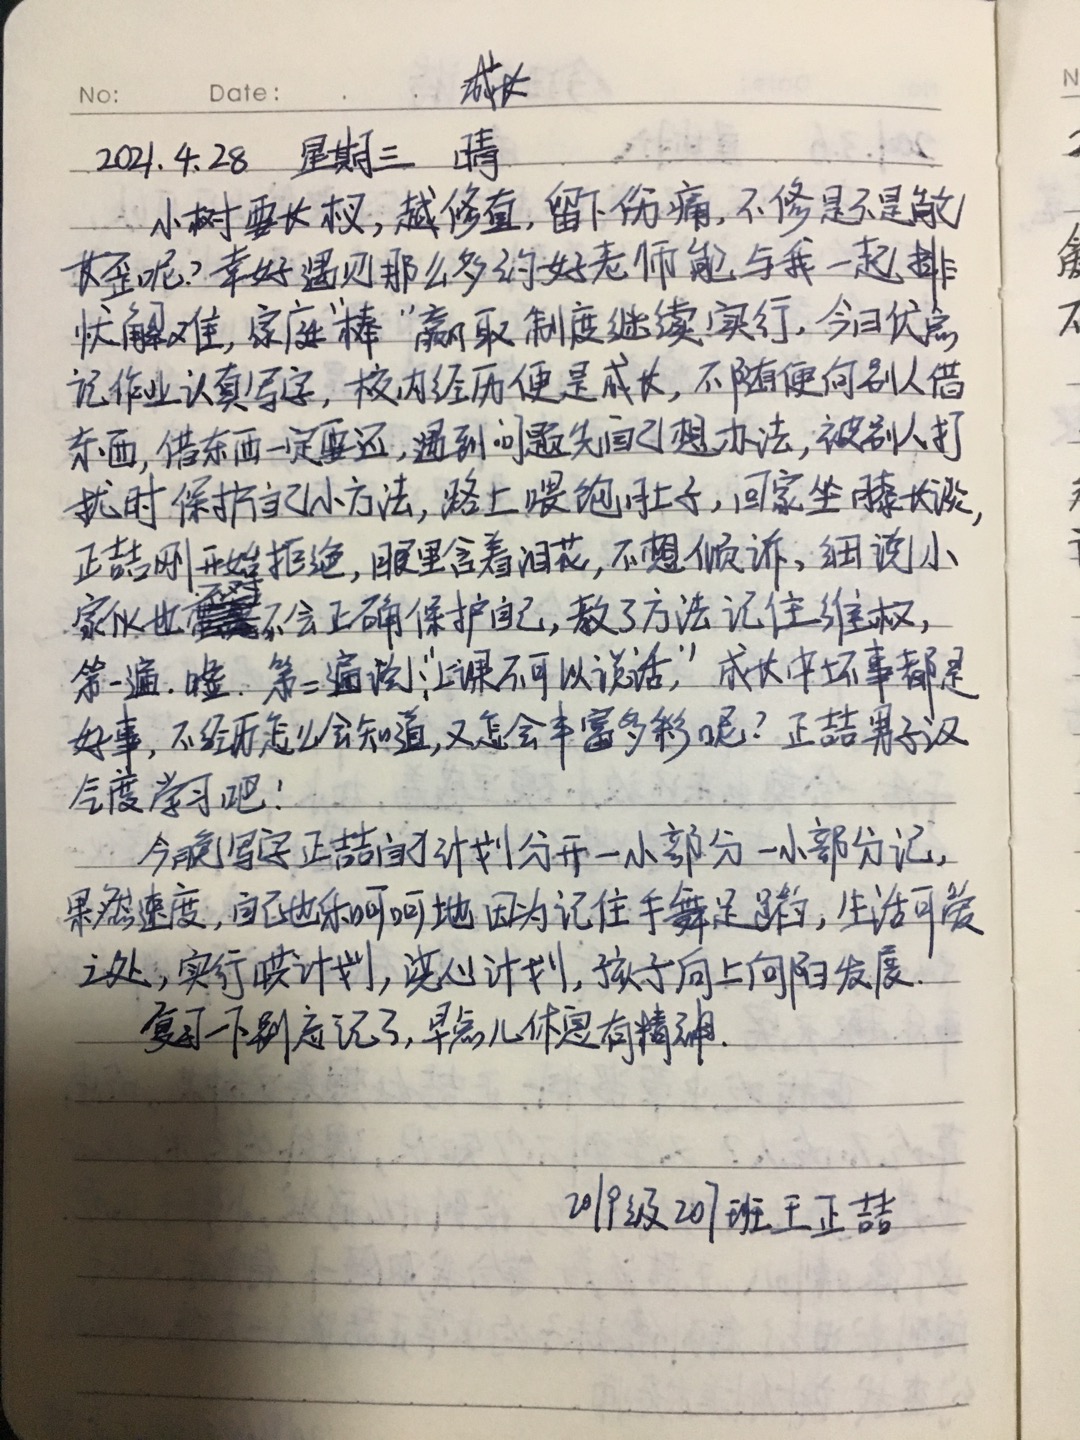 成长
No: Date:
2021.4.28 星期三 晴
小树要长杈,越修直,留下伤痛,不修是不是敞
长歪呢?幸好遇见那么多的好老师能与我一起排
忧解难,家庭“棒”赢取制度继续实行,今日优点
记作业认真写字,校内经历便是成长,不随便向别人借
东西,借东西一定要还,遇到问题先自己想办法,被别人打
扰时保护自己小方法,路上喂饱肚子,回家坐膝长谈,
正喆刚开始拒绝,眼里含着泪花,不想倾诉,细说小
家伙也不会正确保护自己,教了方法记住维权,
第一遍.嘘.第二遍说:“上课不可以说话,”成长中坏事都是
好事,不经历怎么会知道,又怎会丰富多彩呢?正喆男子汉
大度学习吧!
今晚写字正喆自己计划分开一小部分一小部分记,
果然速度,自己也乐呵呵地因为记住手舞足蹈,生活可爱
之处,实行计划,计划,孩子向上向阳发展.
复习一下别忘记了,早点儿休息有精神.
2019级207班王正喆